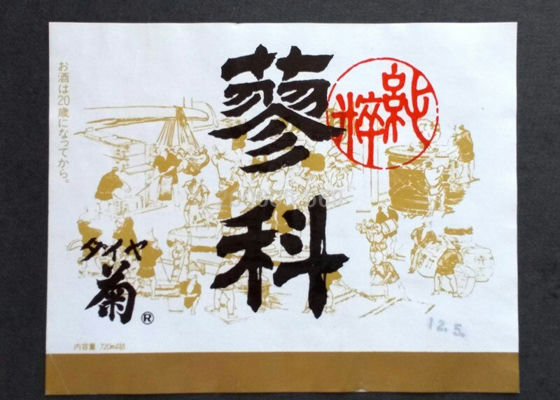 お酒は20歳になってから。
蓼科
純粋
ダイヤ
菊®
内容量 720ml詰
12.5.